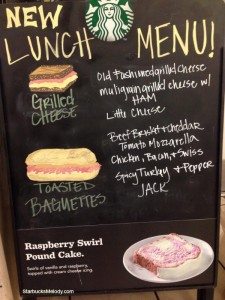 NEW
LUNCH MENU!
Old Fashioned grilled cheese
muligrain grilld cheese w/
HAM
Little Cheese
GRilled
CHEESE
Beef Brisket + cheddar
Tomato Mozzarella
Chicken, Bacon, & Swiss
Spicy Turkey & Pepper
JACK
TOASTED
BAGUETTES
Raspberry Swirl
Pound Cake.
Swirls of vanilla and raspberry,
topped with cream cheese icing.
StarbucksMelody.com